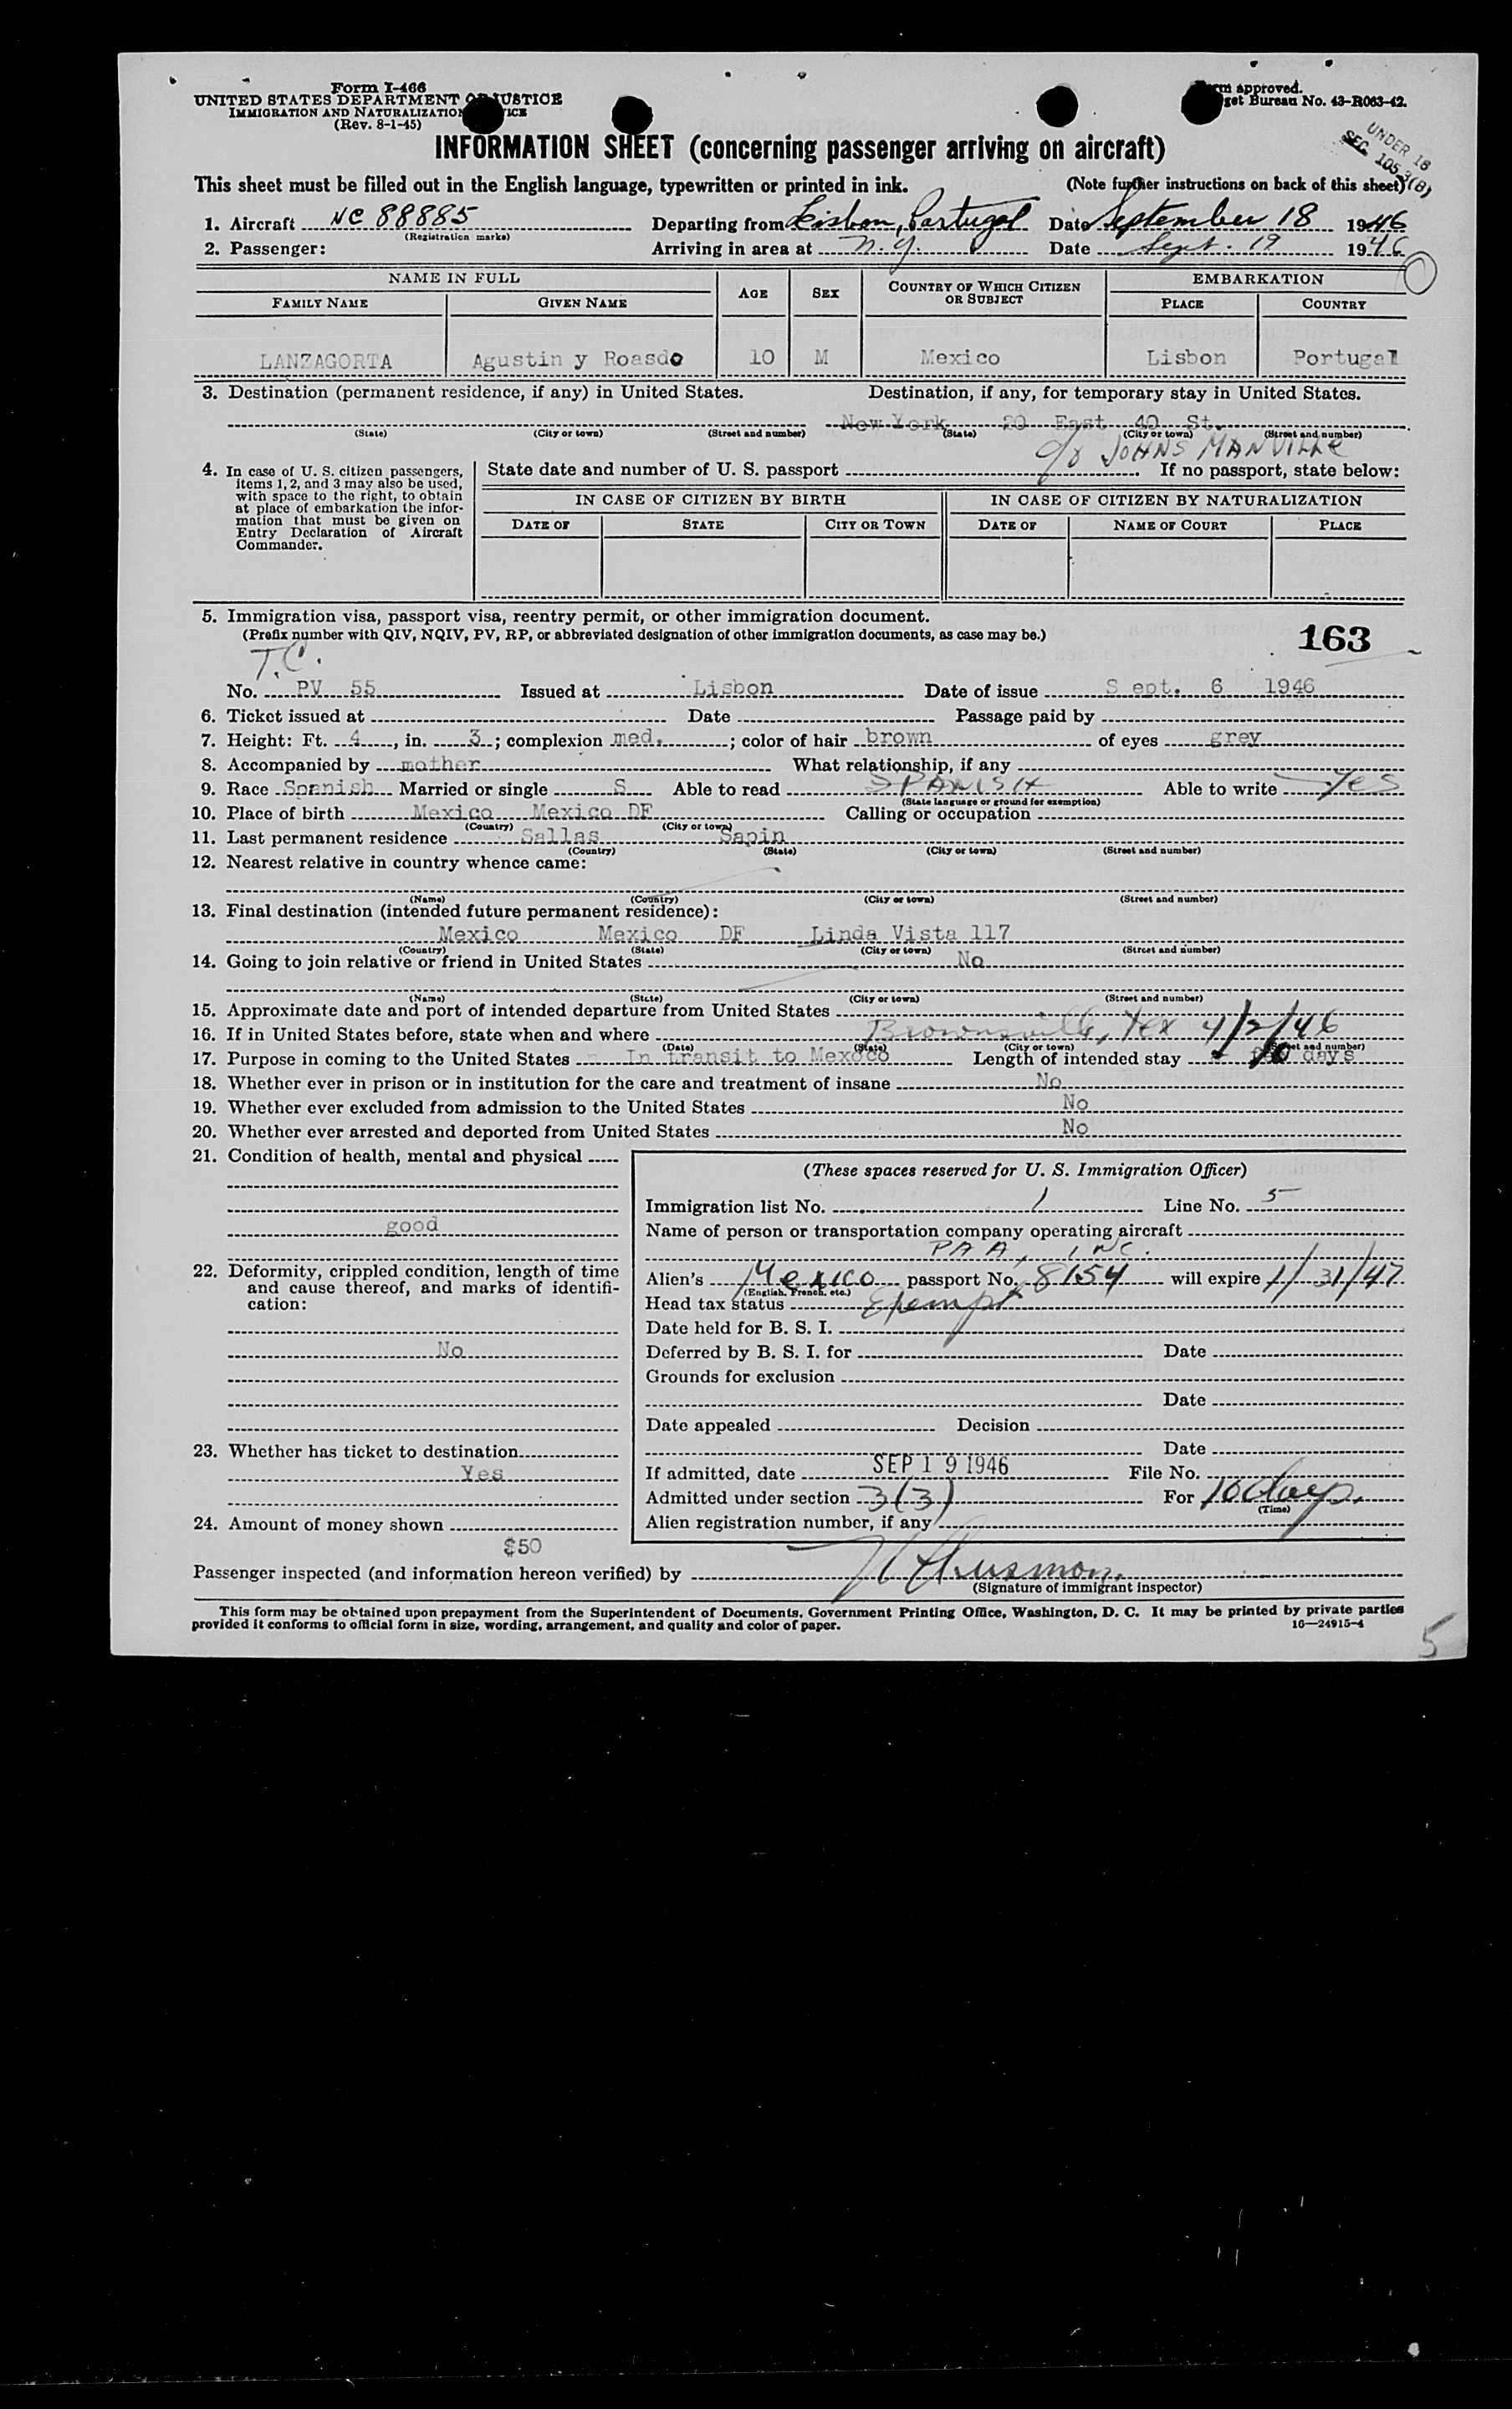 Form I-466
UNITED STATES DEPARTMENT OF JUSTICE
IMMIGRATION AND NATURALIZATION
(Rev. 8-1-45)
approved.
Bureau No. 43-R063-42.
UNDER 16
SEC. 105.3(B)
INFORMATION SHEET (concerning passenger arriving on aircraft)
This sheet must be filled out in the English language, typewritten or printed in ink. (Note further instructions on back of this sheet)
1. Aircraft NC 88885 Departing from Lisbon, Portugal Date September 18 1946
(Registration marks)
2. Passenger: Arriving in area at N.Y. Date Sept. 19 1946
NAME IN FULL AGE SEX COUNTRY OF WHICH CITIZEN OR SUBJECT EMBARKATION
FAMILY NAME GIVEN NAME PLACE COUNTRY
LANZAGORTA Agustin y Roasdo 10 M Mexico Lisbon Portugal
3. Destination (permanent residence, if any) in United States. Destination, if any, for temporary stay in United States.
New York 20 East 40 St.
(State) (City or town) (Street and number) (State) (City or town) (Street and number)
c/o JOHNS MANVILLE
4. In case of U. S. citizen passengers, items 1, 2, and 3 may also be used, with space to the right, to obtain at place of embarkation the information that must be given on Entry Declaration of Aircraft Commander.
State date and number of U. S. passport If no passport, state below:
IN CASE OF CITIZEN BY BIRTH IN CASE OF CITIZEN BY NATURALIZATION
DATE OF STATE CITY OR TOWN DATE OF NAME OF COURT PLACE
5. Immigration visa, passport visa, reentry permit, or other immigration document.
(Prefix number with QIV, NQIV, PV, RP, or abbreviated designation of other immigration documents, as case may be.)
163
T.C.
No. PV 55 Issued at Lisbon Date of issue S ept. 6 1946
6. Ticket issued at Date Passage paid by
7. Height: Ft. 4, in. 3; complexion med.; color of hair brown of eyes grey
8. Accompanied by mother What relationship, if any
9. Race Spanish Married or single S Able to read SPANISH Able to write Yes
(State language or ground for exemption)
10. Place of birth Mexico Mexico DF Calling or occupation
(Country) (City or town)
11. Last permanent residence Sallas Sapin
(Country) (State) (City or town) (Street and number)
12. Nearest relative in country whence came:
(Name) (Country) (City or town) (Street and number)
13. Final destination (intended future permanent residence):
Mexico Mexico DF Linda Vista 117
(Country) (State) (City or town) (Street and number)
14. Going to join relative or friend in United States No
(Name) (State) (City or town) (Street and number)
15. Approximate date and port of intended departure from United States
16. If in United States before, state when and where Brownsville, Tex 4/2/46
(Date) (State) (City or town) (Street and number)
17. Purpose in coming to the United States In transit to Mexoco Length of intended stay few days
18. Whether ever in prison or in institution for the care and treatment of insane No
19. Whether ever excluded from admission to the United States No
20. Whether ever arrested and deported from United States No
21. Condition of health, mental and physical
good
22. Deformity, crippled condition, length of time and cause thereof, and marks of identification:
No
23. Whether has ticket to destination
Yes
24. Amount of money shown
$50
(These spaces reserved for U. S. Immigration Officer)
Immigration list No. 1 Line No. 5
Name of person or transportation company operating aircraft
PAA, INC.
Alien's Mexico passport No. 8154 will expire 1/31/47
(English, French, etc.)
Head tax status Exempt
Date held for B. S. I.
Deferred by B. S. I. for Date
Grounds for exclusion
Date
Date appealed Decision
Date
If admitted, date SEP 19 1946 File No.
Admitted under section 3(3) For 10 days.
(Time)
Alien registration number, if any
Passenger inspected (and information hereon verified) by
(Signature of immigrant inspector)
This form may be obtained upon prepayment from the Superintendent of Documents, Government Printing Office, Washington, D. C. It may be printed by private parties
provided it conforms to official form in size, wording, arrangement, and quality and color of paper. 16—24915-4
5